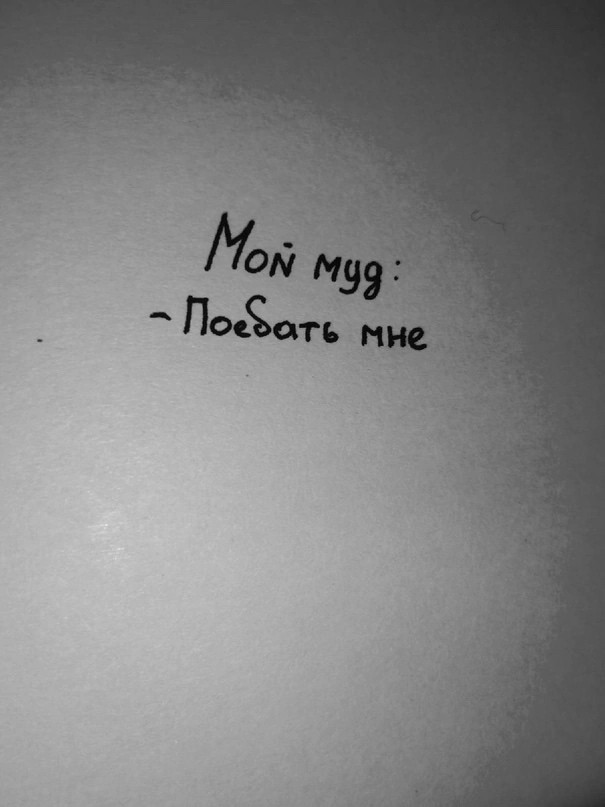 Мой муд:
- Поебать мне